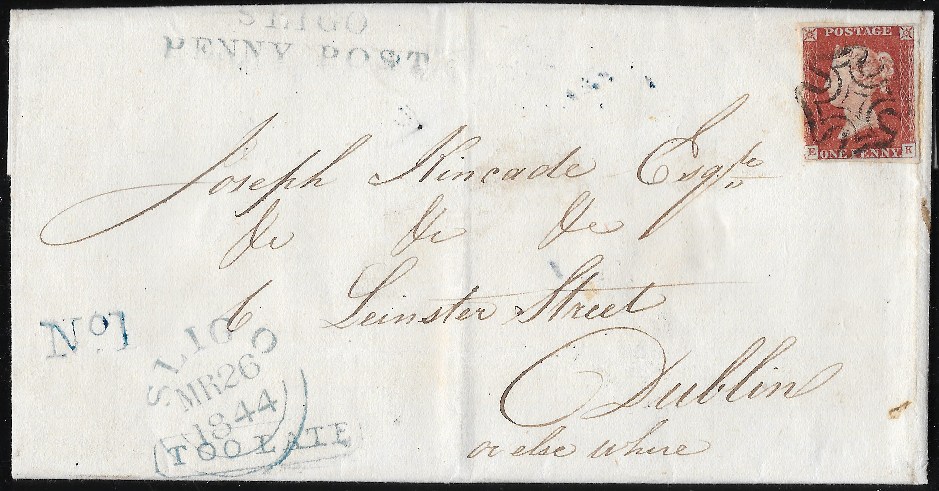 SLIGO
PENNY POST
POSTAGE
E K
ONE PENNY
Joseph Kincade Esqre
&c &c &c
6 Leinster Street
Dublin
or else where
No 1
SLIGO
MR 26
1844
TOO LATE